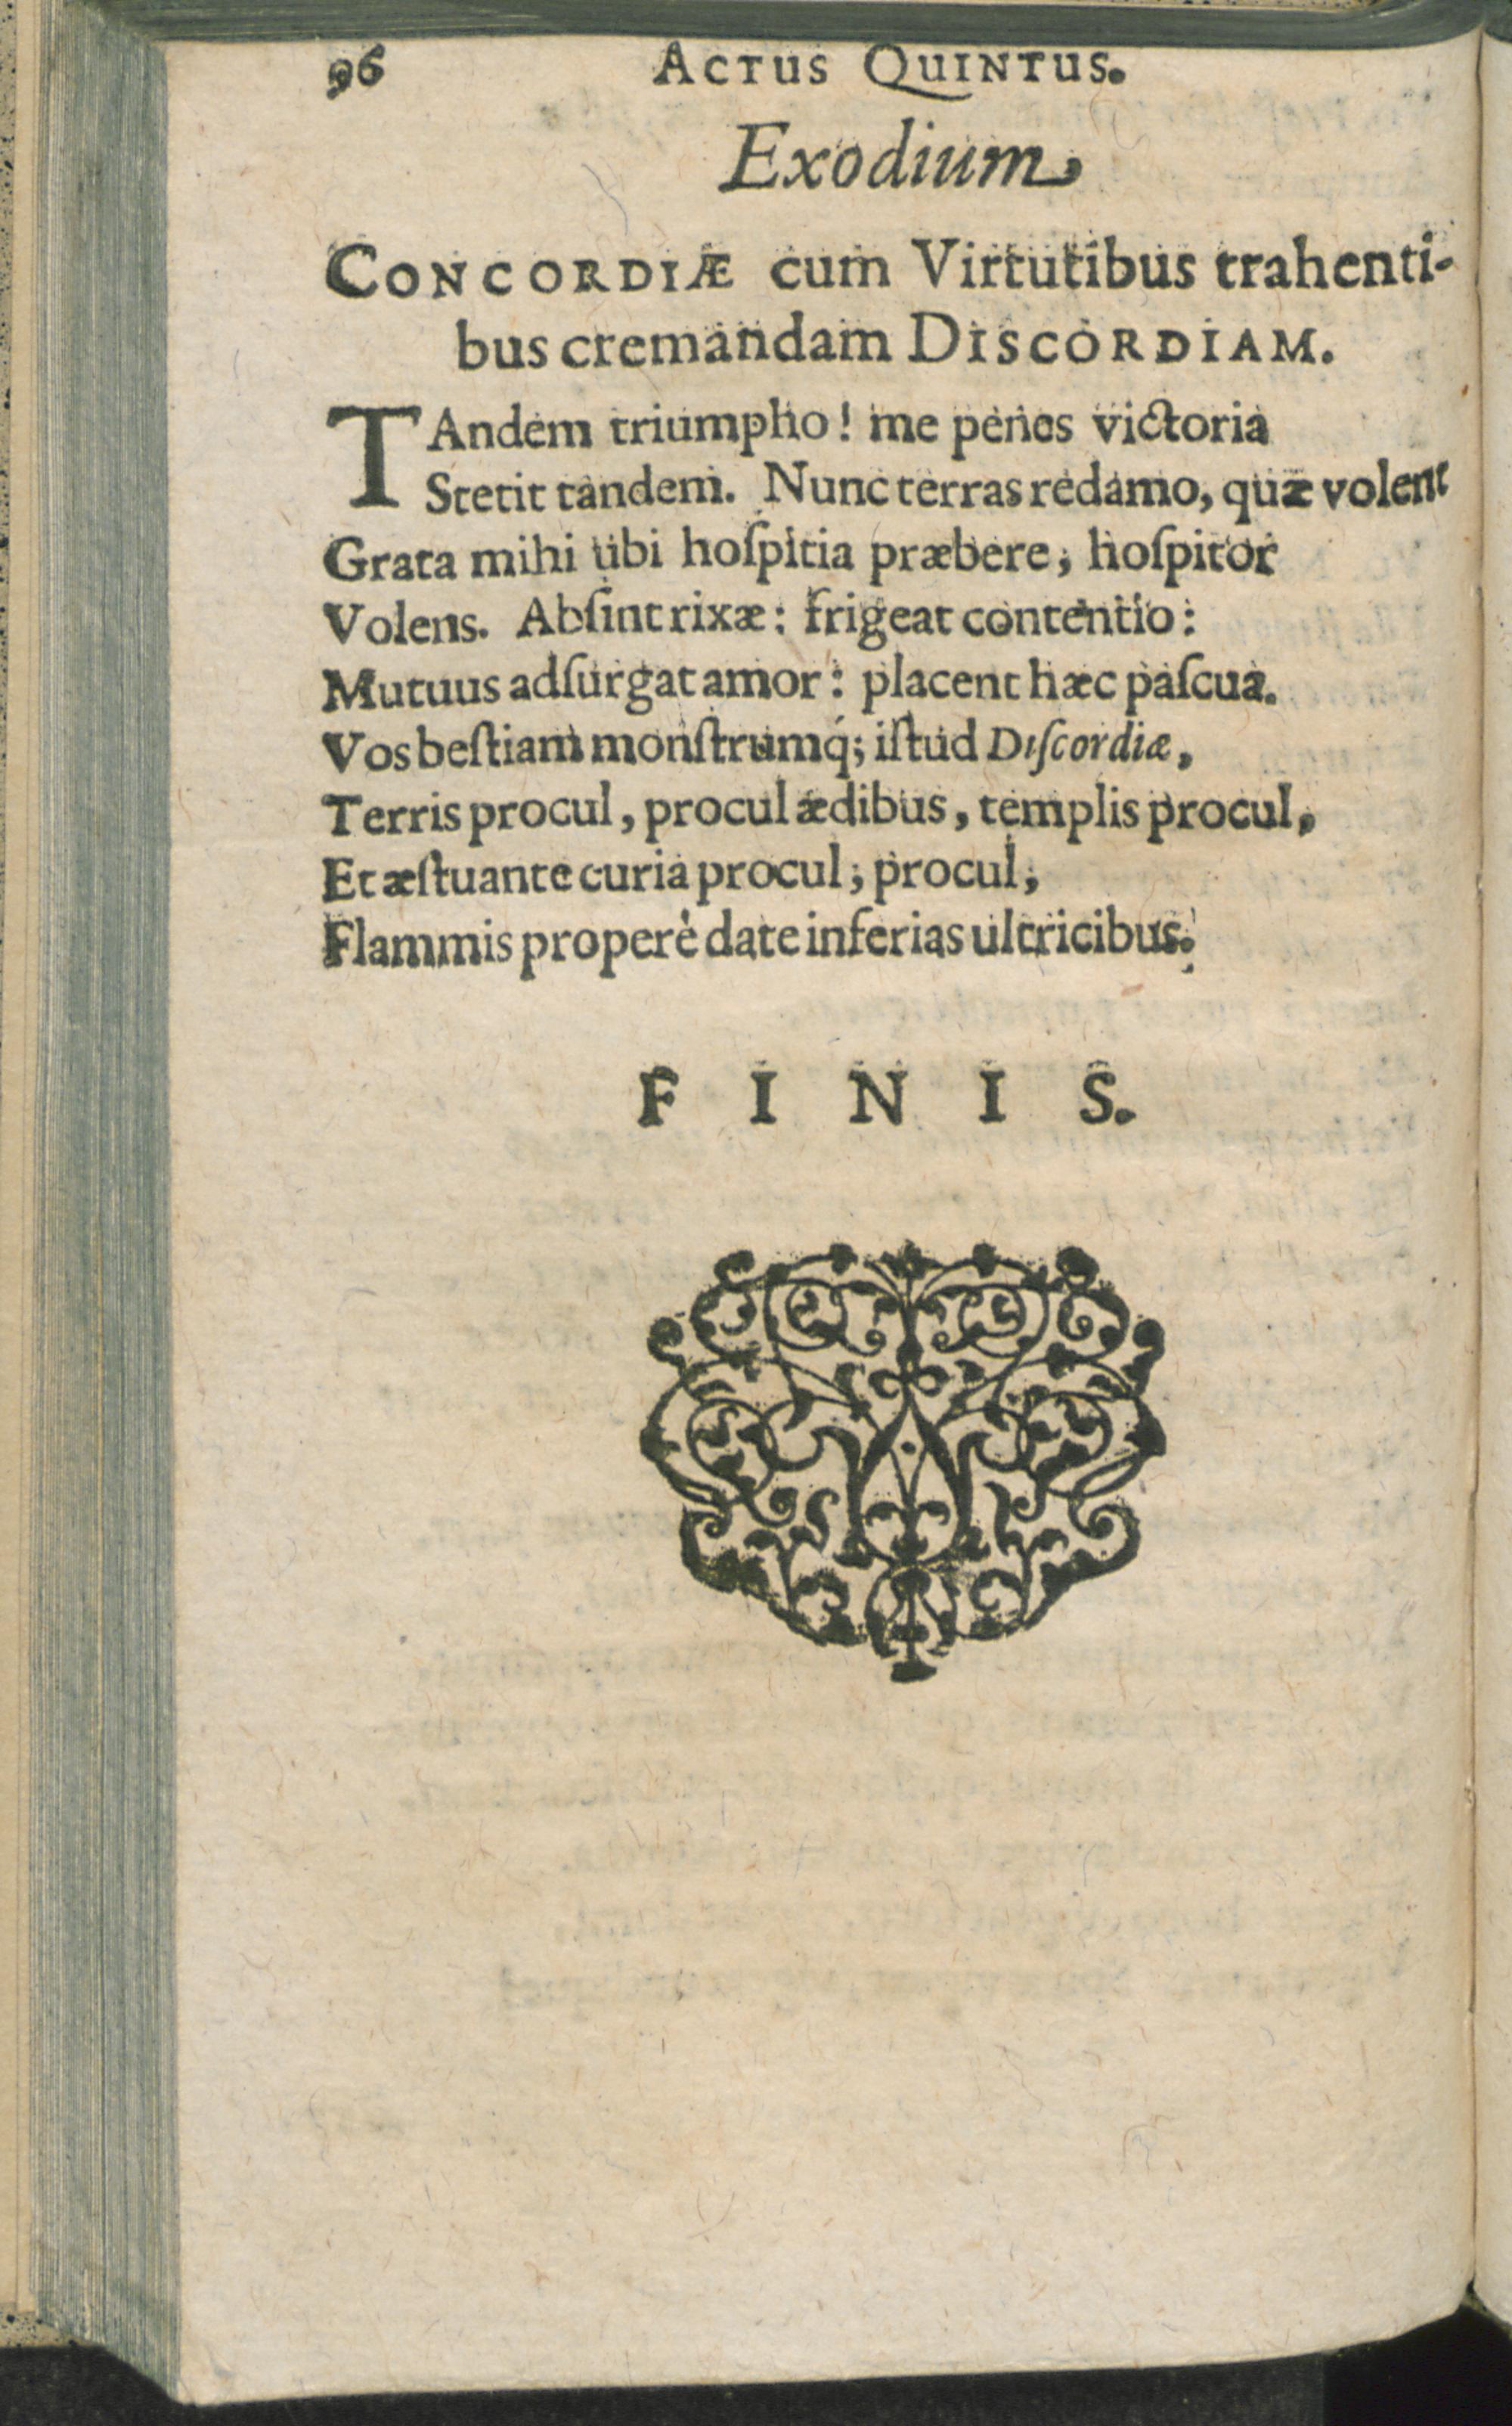 96 ACTUS QUINTUS.
Exodium
CONCORDIÆ cum Virtutibus trahenti-
bus cremandam DISCORDIAM.
TAndem triumpho! me penes victoria
Stetit tandem. Nunc terras redamo, quæ volent
Grata mihi ubi hoſpitia præbere, hoſpitor
Volens. Abſint rixæ: frigeat contentio:
Mutuus adſurgat amor: placent hæc paſcua.
Vos beſtiam monſtrumq́; iſtud Diſcordiæ,
Terris procul, procul ædibus, templis procul,
Et æſtuante curia procul, procul,
Flammis properè date inferias ultricibus.
F I N I S.